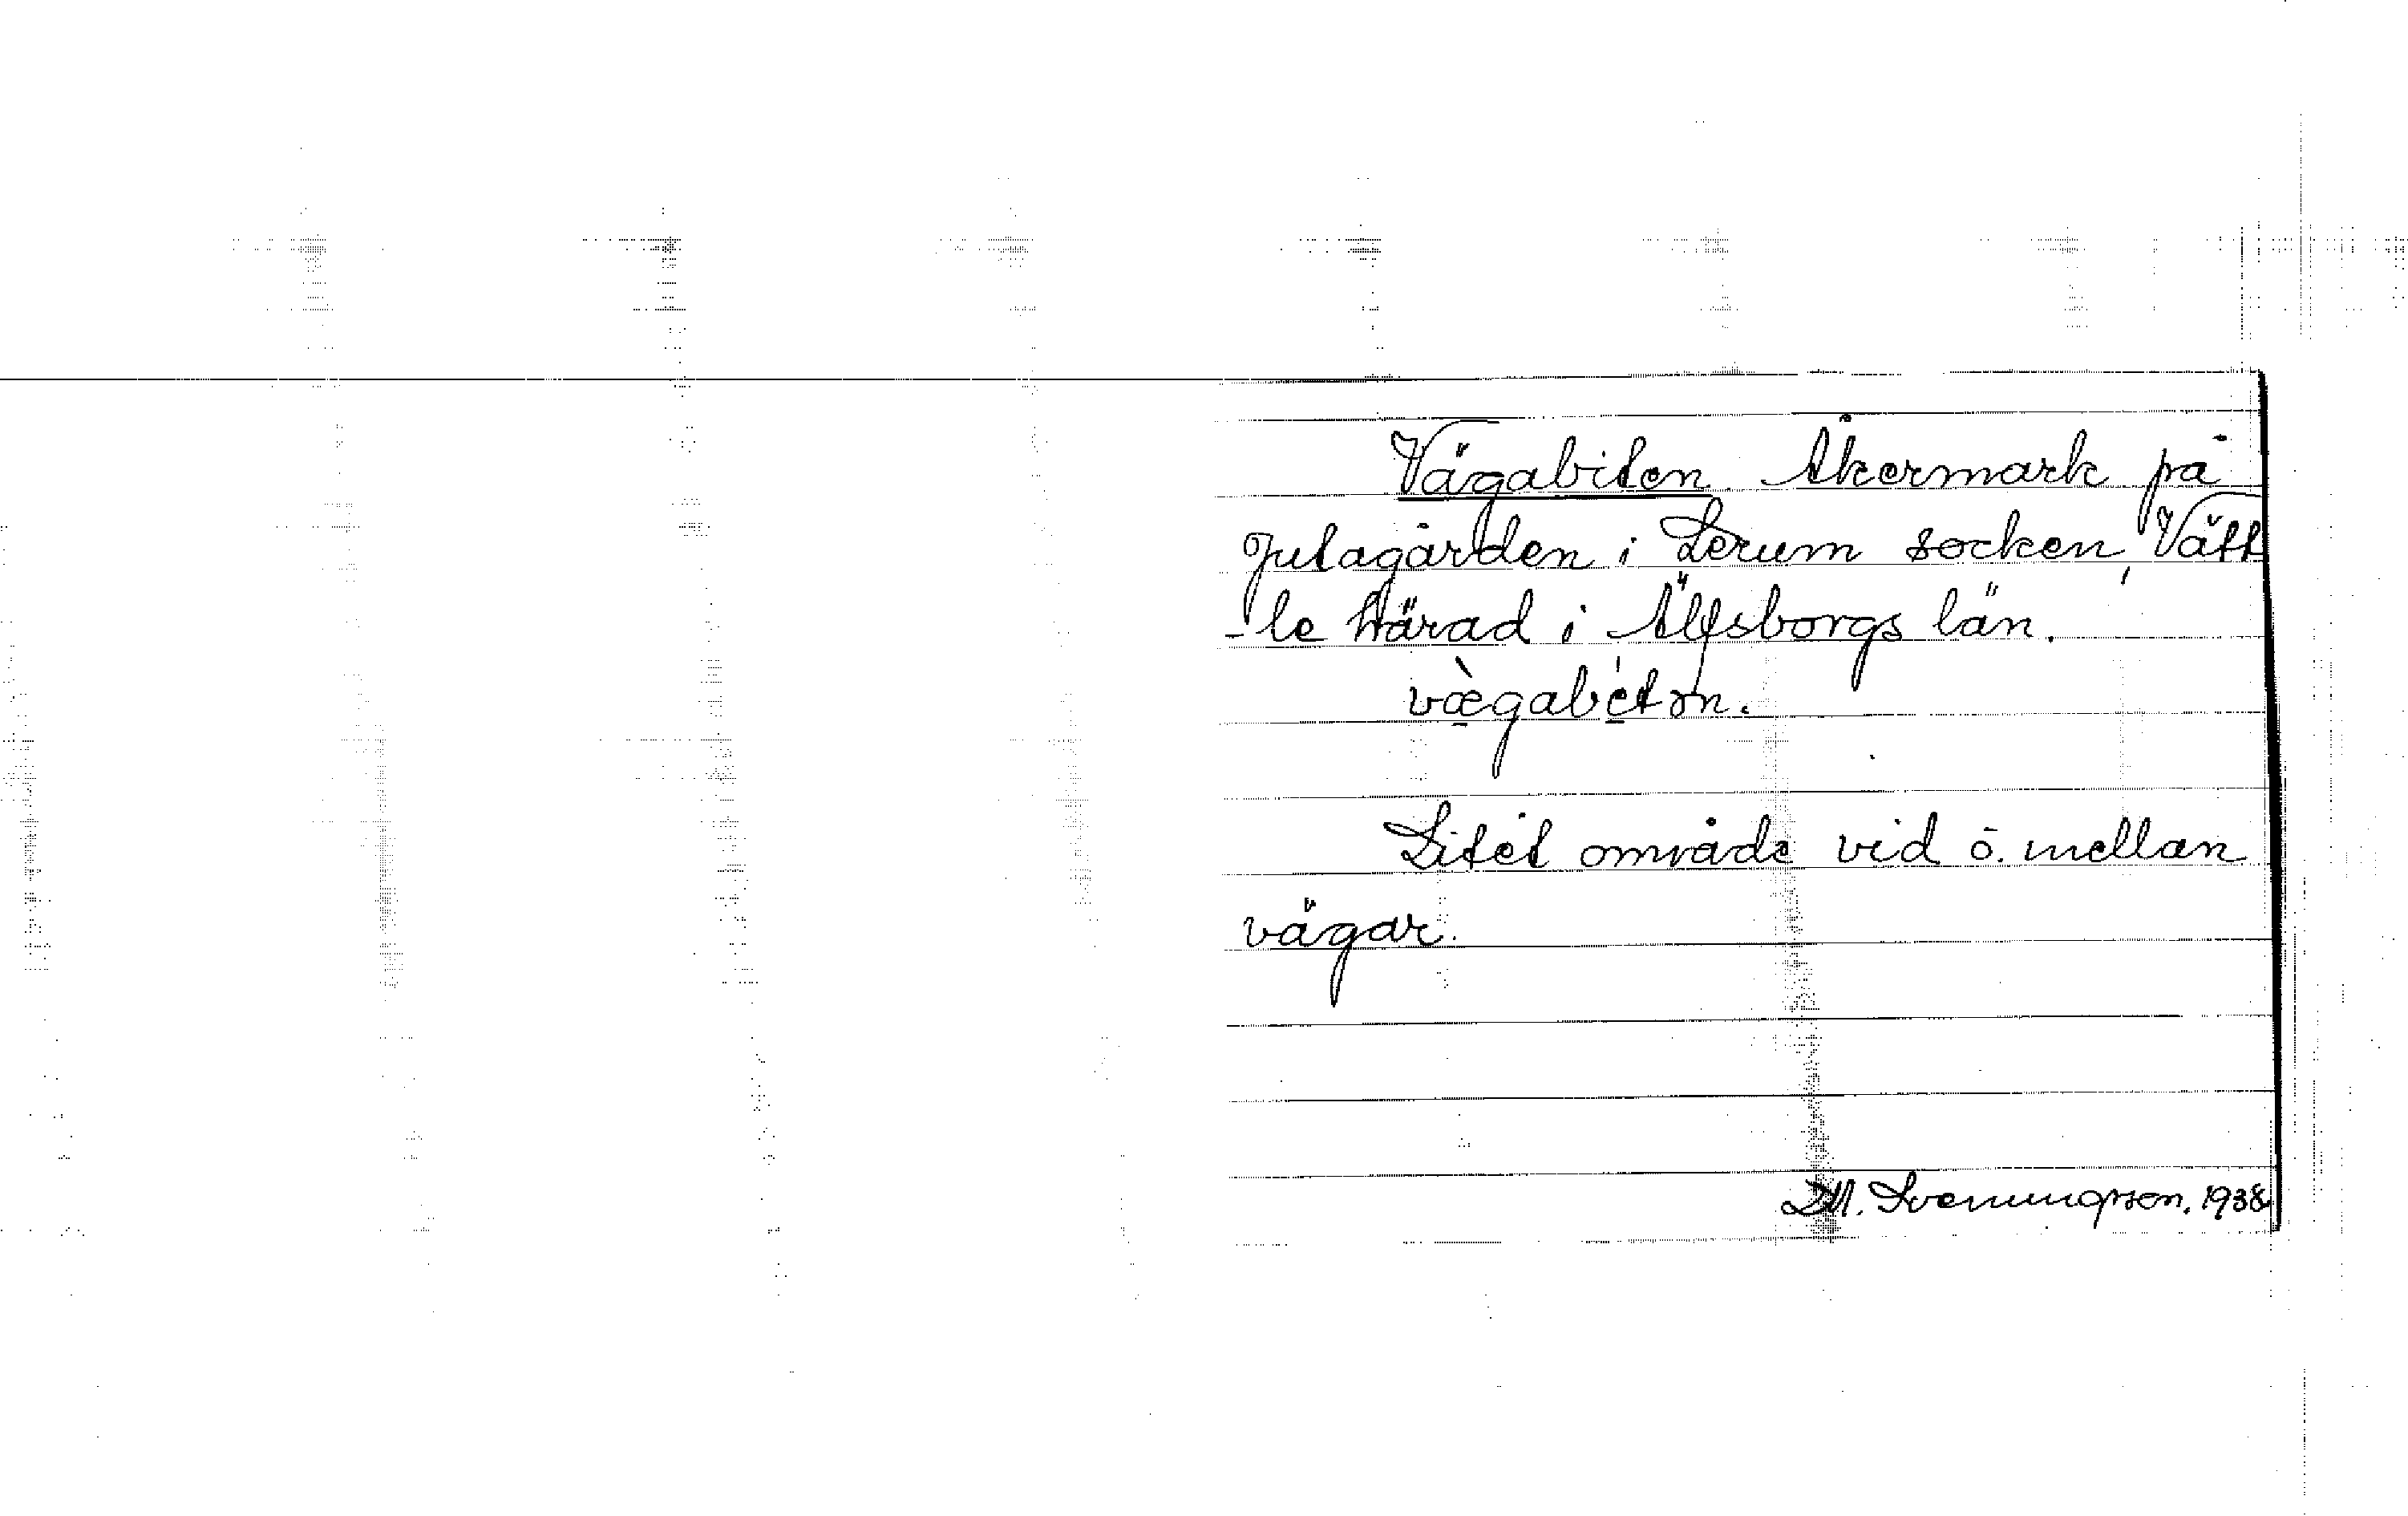 Vägabiten Åkermark på
Jutagården i Lerum socken, Vätt
-le härad i Älfsborgs län.
vægabetən.
Litet område vid ö. mellan
vägar.
D.M. Svenungsson. 1938